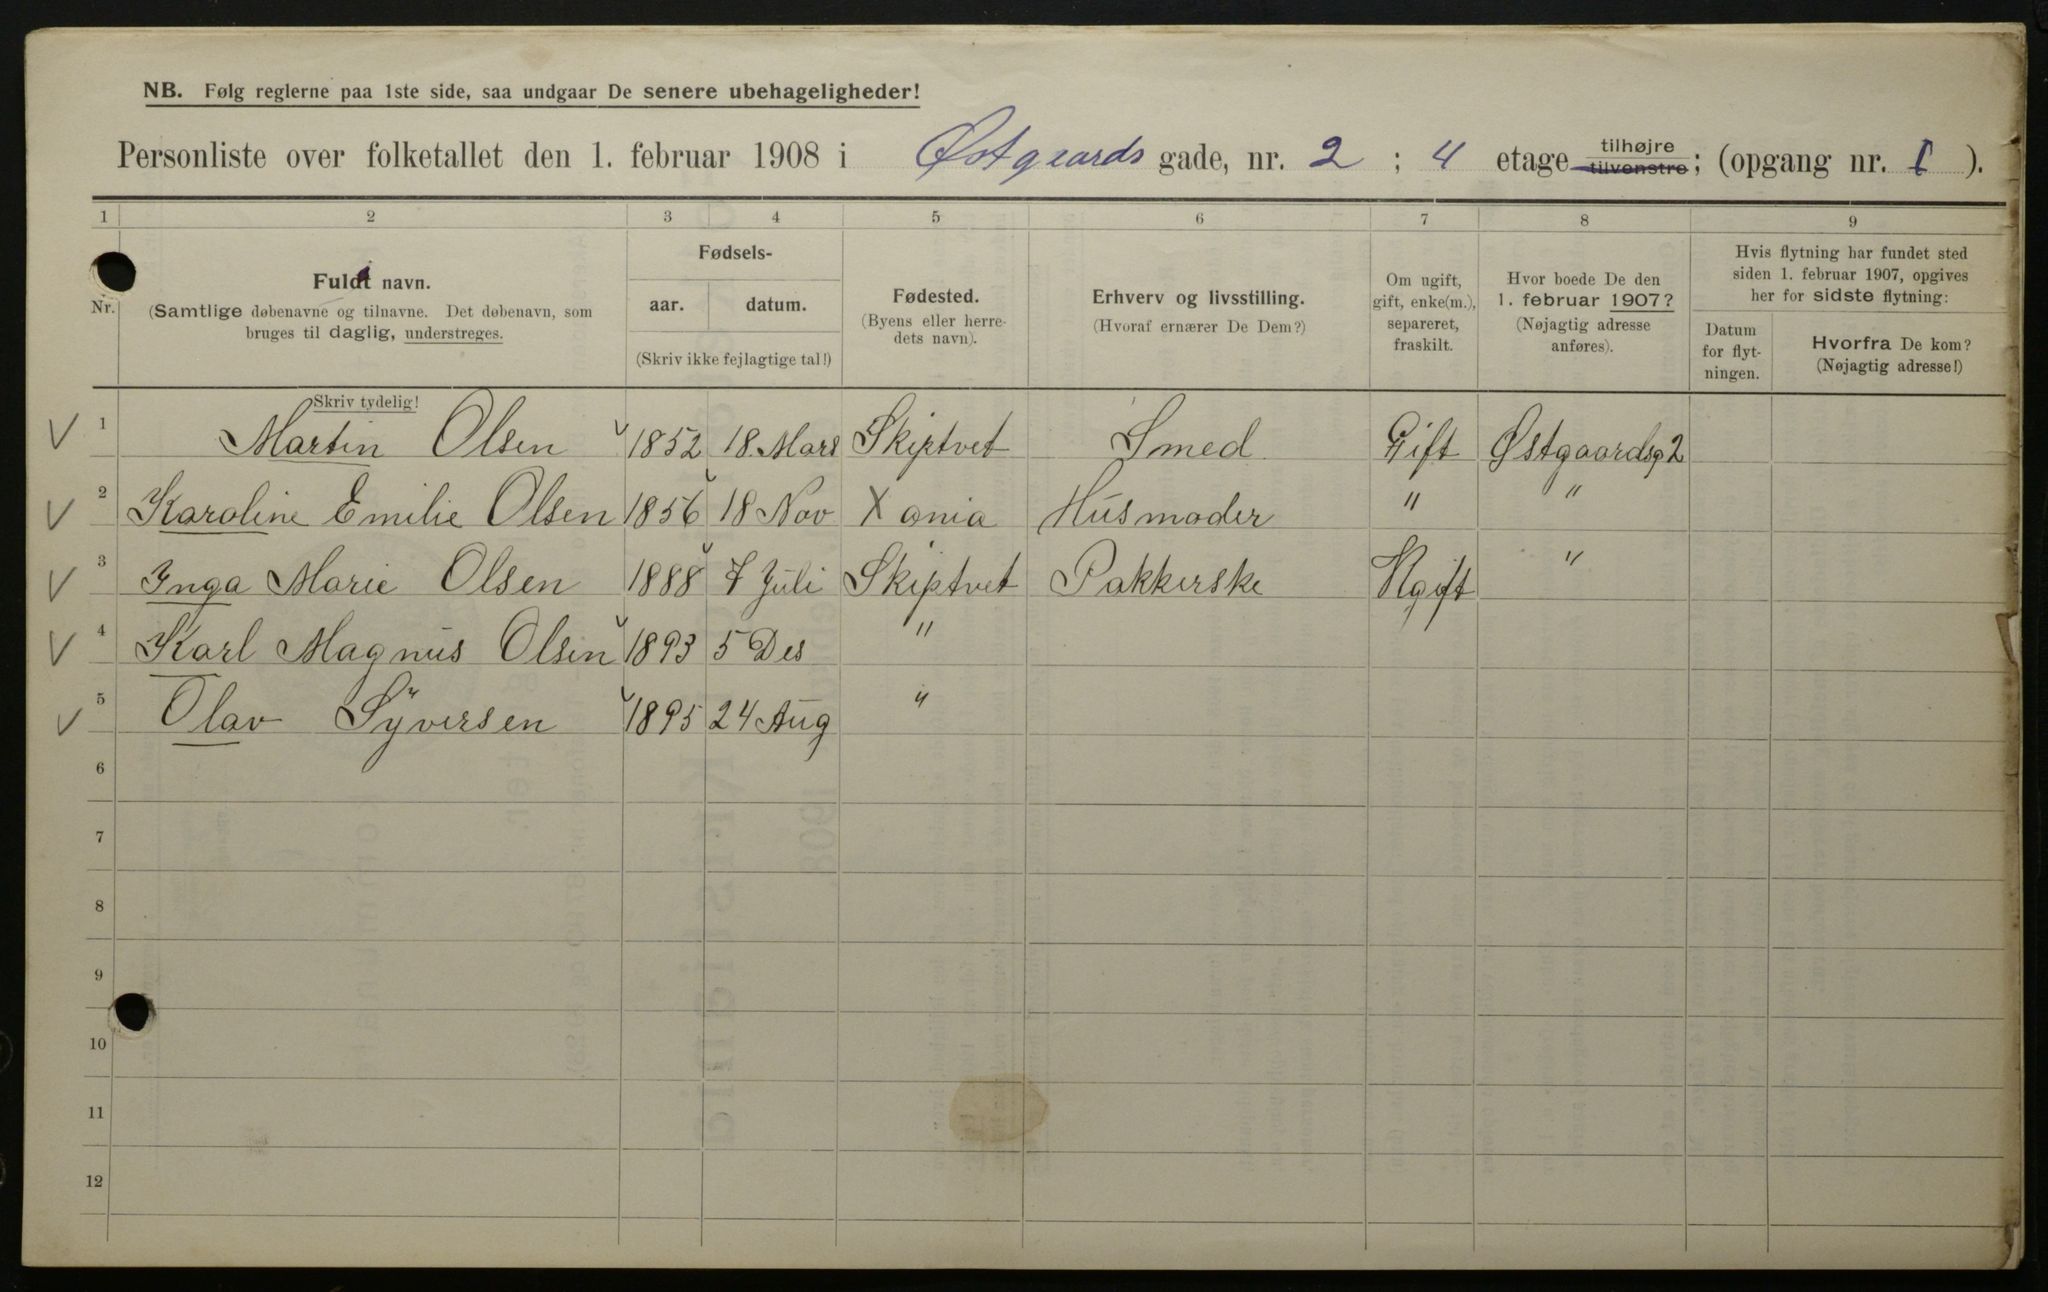 NB. Følg reglerne paa 1ste side, saa undgaar De senere ubehageligheder!
Personliste over folketallet den 1. februar 1908 i Østgaards gade, nr. 2 ; 4 etage tilhøjre tilvenstre; (opgang nr. 1 ).
1 2 3 4 5 6 7 8 9
Nr.
Fuldt navn.
(Samtlige døbenavne og tilnavne. Det døbenavn, som
bruges til daglig, understreges.
Skriv tydelig!
Fødsels-
aar. datum.
(Skriv ikke fejlagtige tal!)
Fødested.
(Byens eller herre-
dets navn).
Erhverv og livsstilling.
(Hvoraf ernærer De Dem?)
Om ugift,
gift, enke(m.),
separeret,
fraskilt.
Hvor boede De den
1. februar 1907?
(Nøjagtig adresse
anføres).
Hvis flytning har fundet sted
siden 1. februar 1907, opgives
her for sidste flytning:
Datum
for flyt-
ningen.
Hvorfra De kom?
(Nøjagtig adresse!)
1 Martin Olsen 1852 18. Mars Skiptvet Smed Gift Østgaardsg 2
2 Karoline Emilie Olsen 1856 18 Nov Xania Husmoder " "
3 Inga Marie Olsen 1888 7 Juli Skiptvet Pakkerske Ugift "
4 Karl Magnus Olsen 1893 5 Des "
5 Olav Syversen 1895 24 Aug "
6
7
8
9
10
11
12